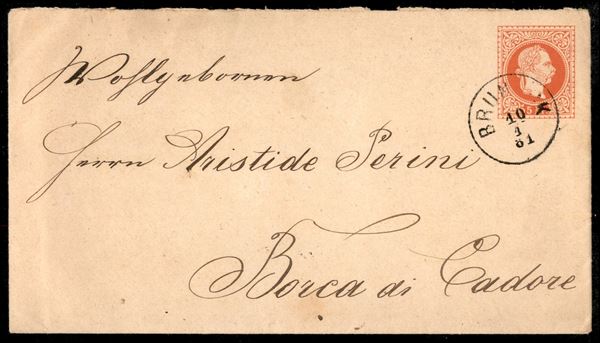 Wohlgebornen
Herrn Aristide Perini
Borca di Cadore
10
1
81